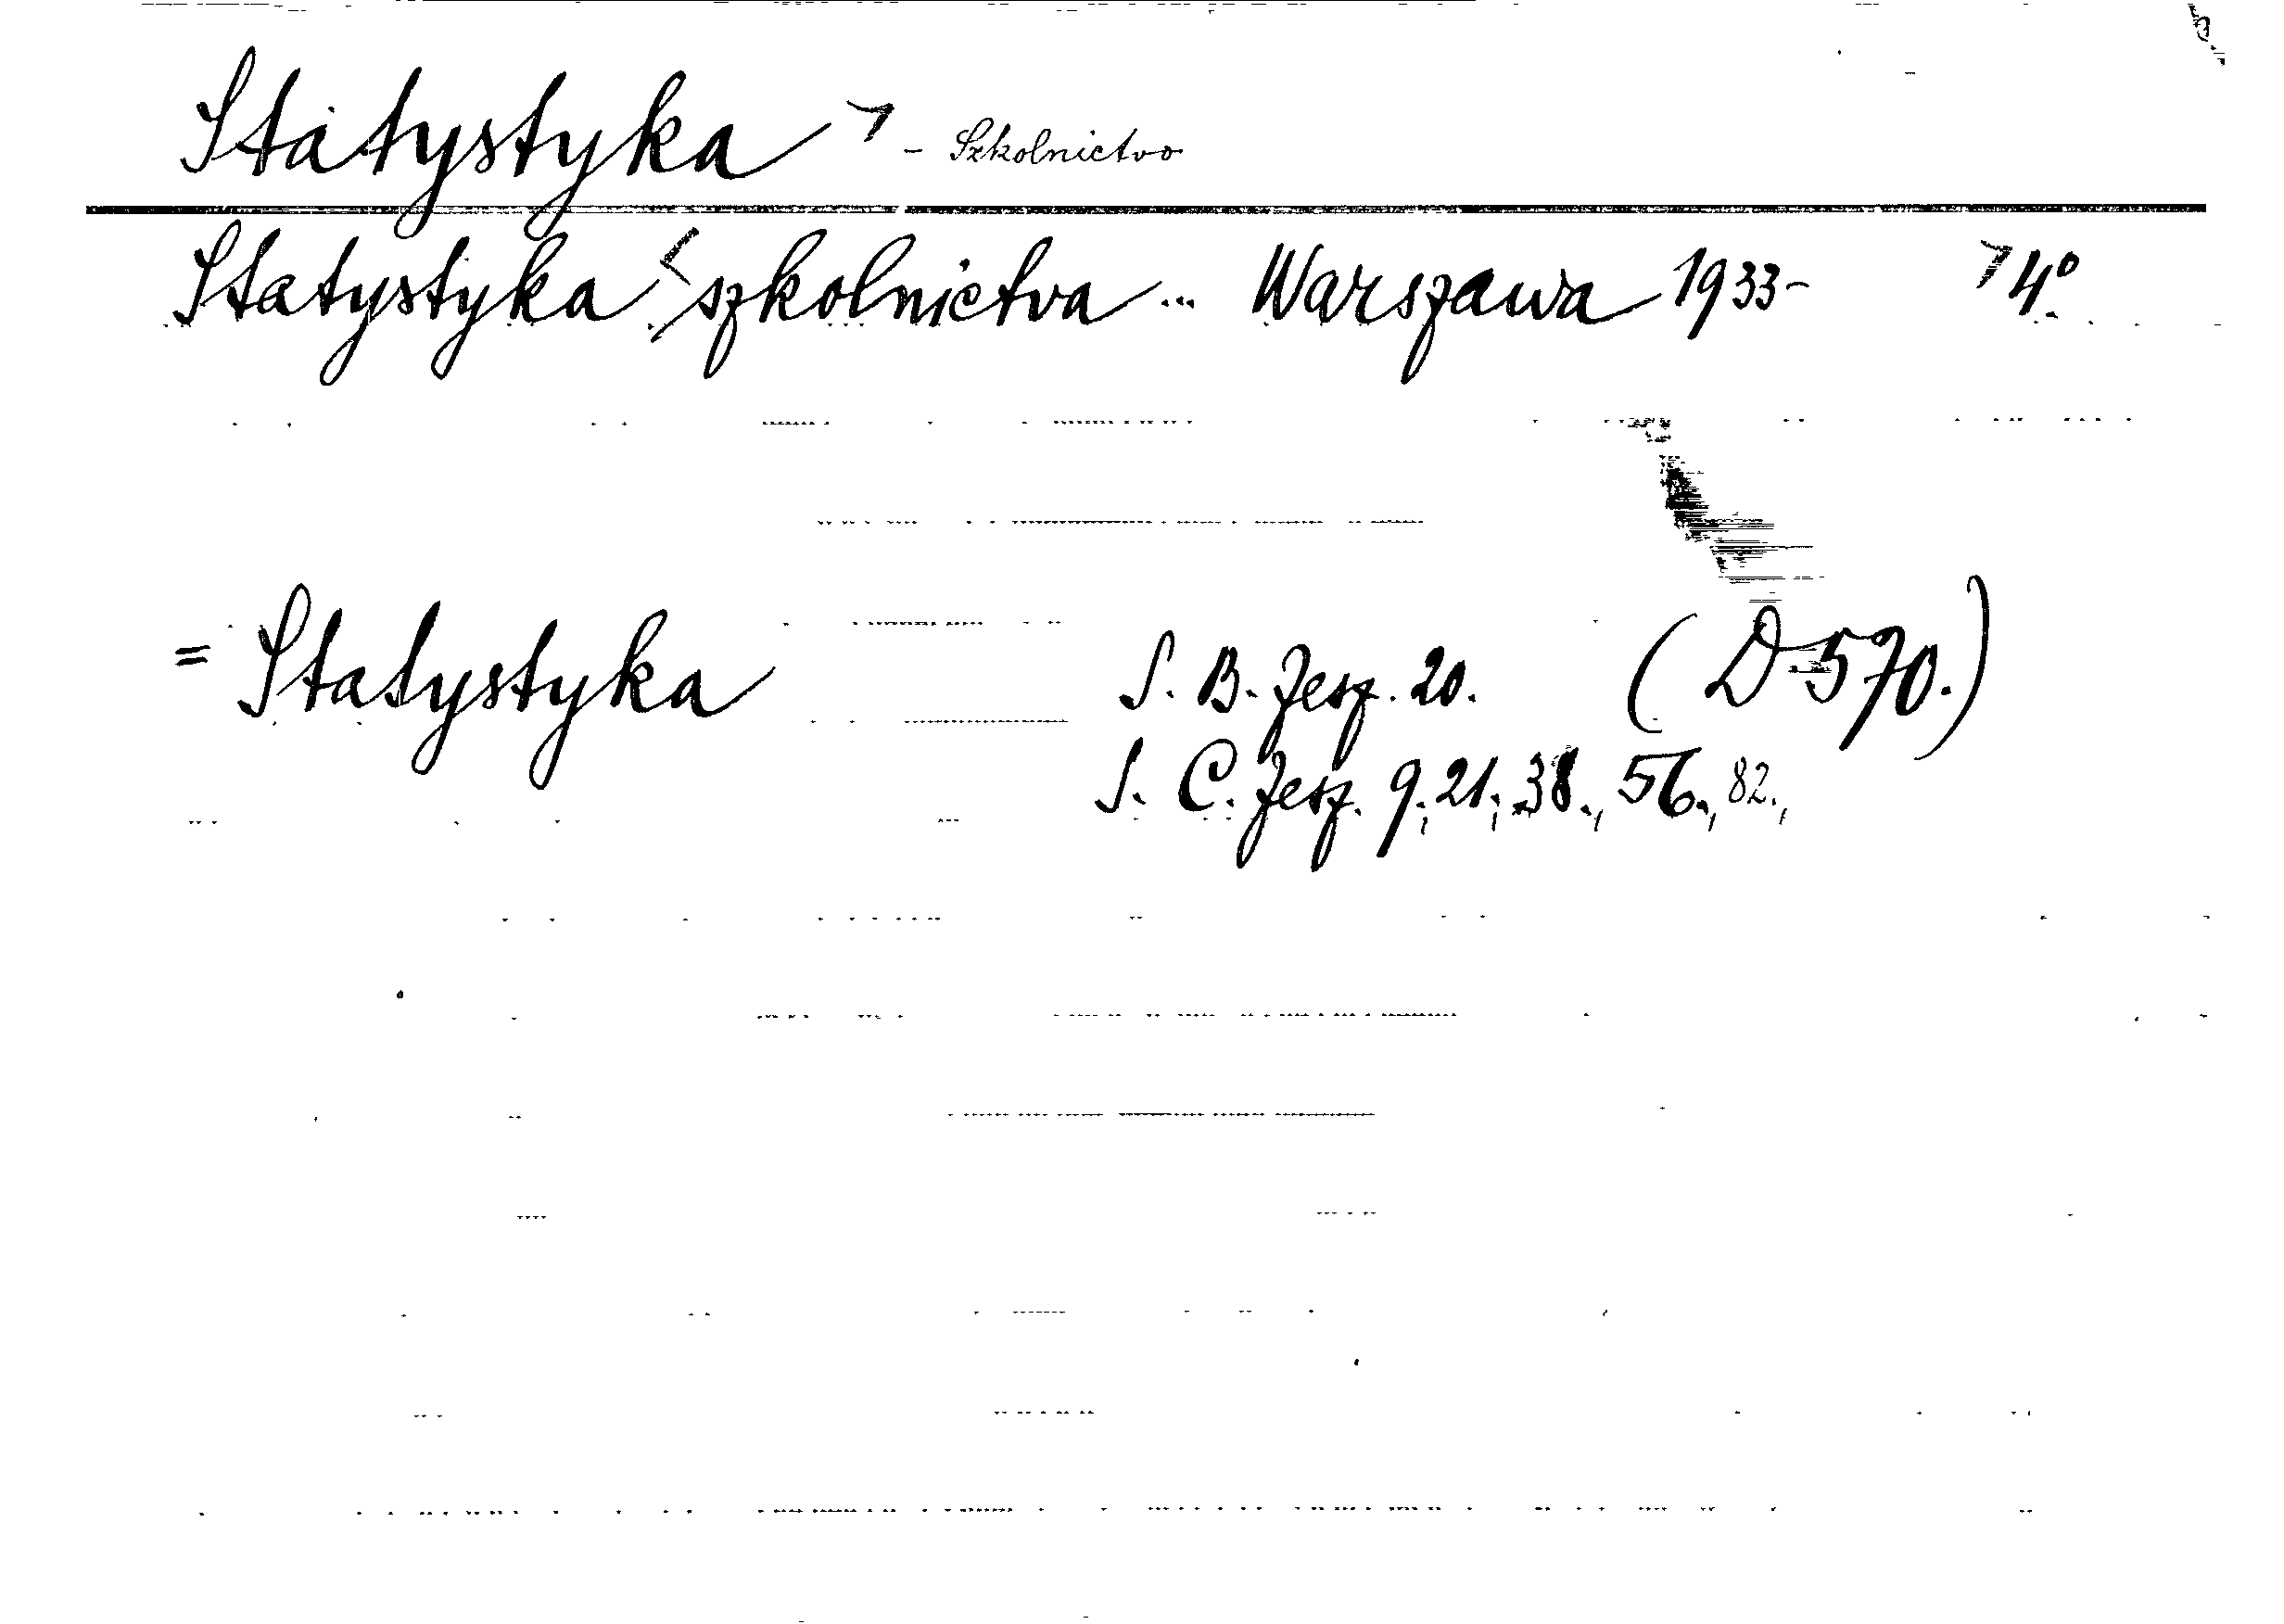 Statystyka - Szkolnictwo
Statystyka szkolnictwa ... Warszawa 1933- 4º.
= Statystyka S. B. Zesz. 20. (D 570.)
S. C. Zesz. 9., 21., 38., 56., 82.,